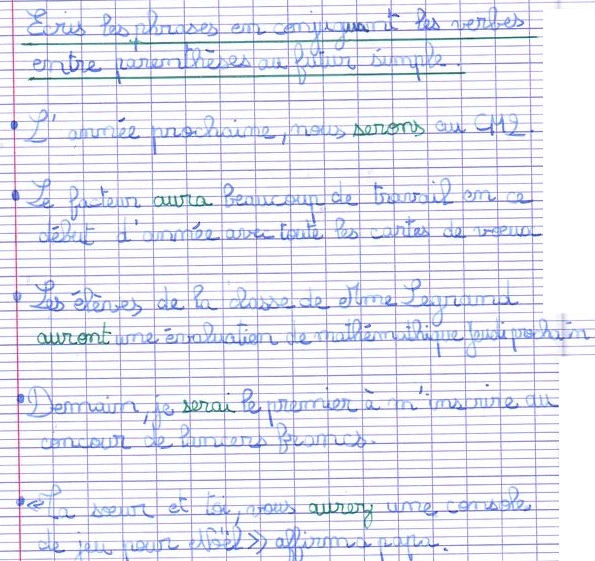 Écris les phrases en conjuguant les verbes
entre parenthèses au futur simple.
L'année prochaine, nous serons au CM2.
Le facteur aura beaucoup de travail en ce
début d'année avec toute les cartes de voeux
Les élèves de la classe de Mme Legrand
auront une évaluation de mathémathique jeudi prochain
Demain, je serai le premier à m'inscrire au
concour de
«Ta soeur et toi, vous aurez une console
de jeu pour Noël» affirma papa.